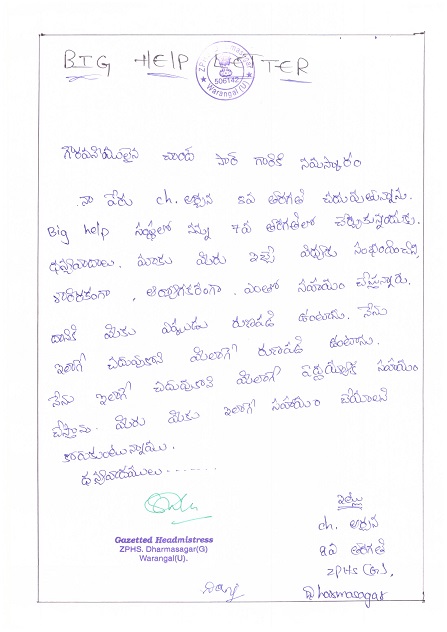 BIG HELP LETTER
ZPHS Dharmasagar
506142
Warangal(U)
గౌరవనీయులైన చాంద్ సార్ గారికి నమస్కారం
నా పేరు ch. అర్చన 8వ తరగతి చదువుతున్నాను.
Big help సంస్థలో నన్ను 7వ తరగతిలో చేర్చుకున్నందుకు
ధన్యవాదాలు. మాకు మీరు ఇచ్చే విద్యకు సంభందించిన
శారీరకంగా , ఆరోగ్యకరంగా . ఎంతో సహాయం చేస్తున్నారు.
దానికి మీకు ఎప్పుడు రుణపడి ఉంటాను. నేను
ఇలాగే చదువుకొని మీలాగే రుణపడి ఉంటాను.
నేను ఇలాగే చదువుకొని మీలాగే సహాయం
చేస్తాను. మీరు మీకు ఇలాగే సహాయం చేయాలని
కోరుకుంటున్నాము.
ధన్యవాదములు.......
Gazetted Headmistress
ZPHS. Dharmasagar(G)
Warangal(U).
ఇట్లు
ch. అర్చన
8వ తరగతి
ZPHS (G),
Dharmasagar